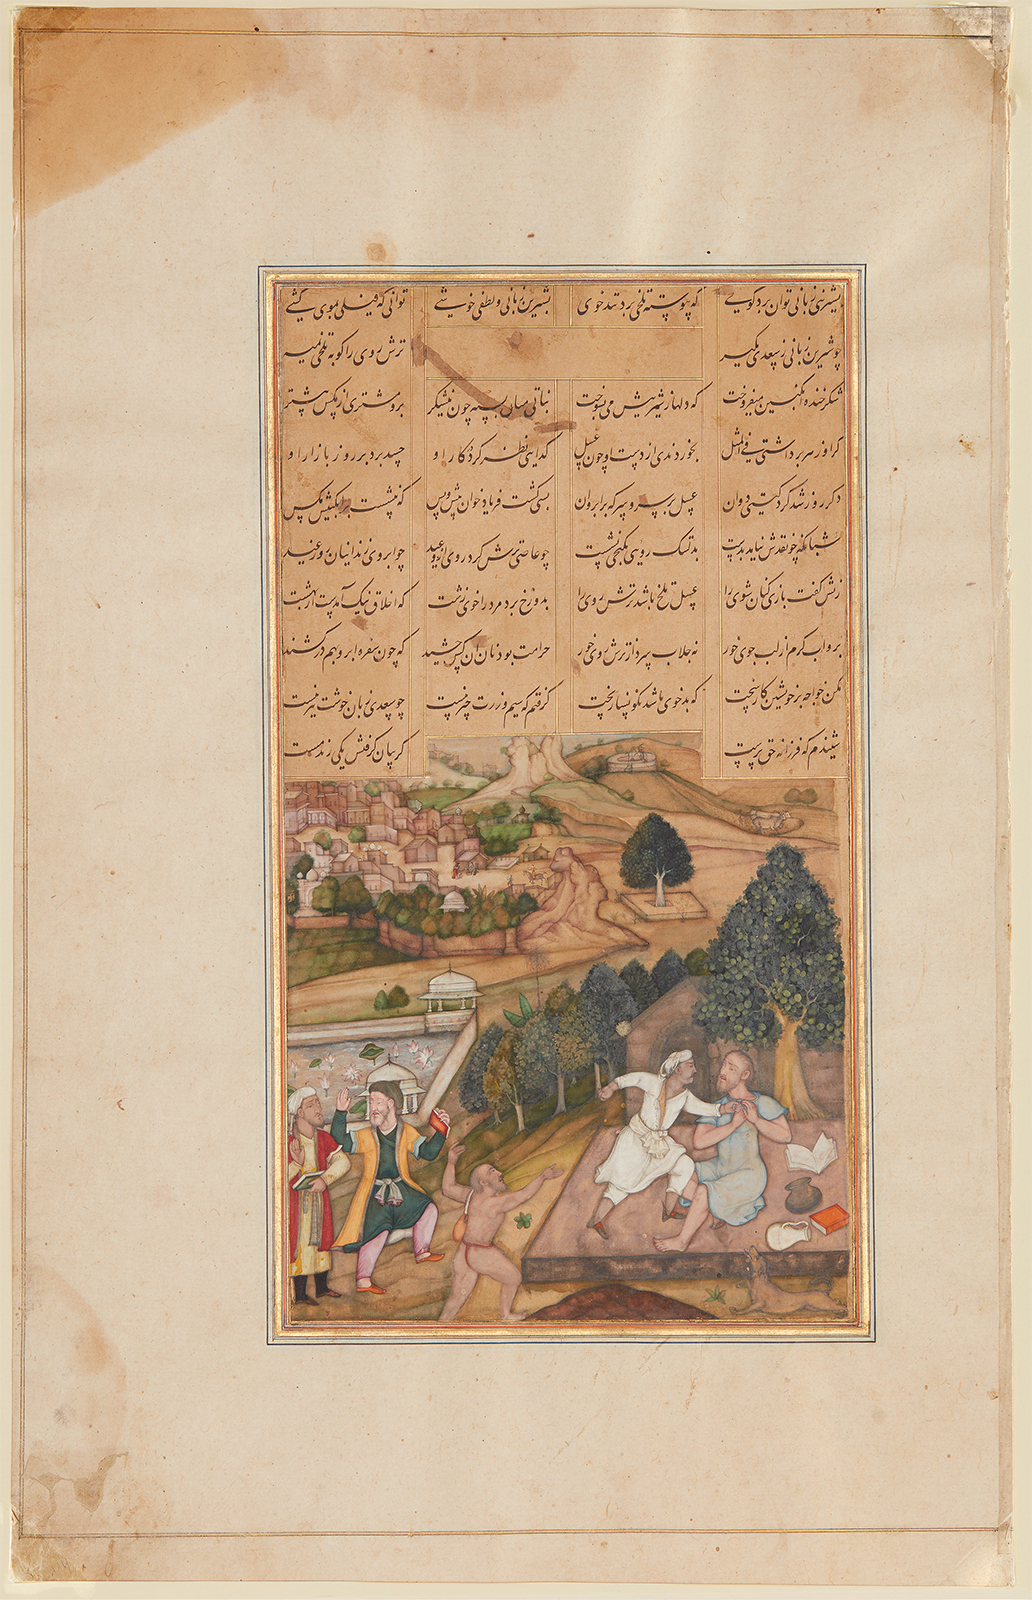 بشیرین زبانی توان برد گوی که پیوسته تلخی برد تند خوی بشیرین زبانی و لطفی خوشی توانی که فیلی بموی کشی
چو شیرین زبانی ز سعدی بگیر ترش روی را کو به تلخی بمیر
شکر خنده انگبین میفروخت که دلها ز شیرینیش می بسوخت نباتی میان بسته چون نیشکر برو مشتری از مگس بیشتر
گر او زهر برداشتی فی المثل بخوردندی از دست او چون عسل گدایی نظر کرد در کار او حسد برد بر روز بازار او
دگر روز شد گرد گیتی دوان عسل بر سر و سرکه بر ابروان بسی گشت فریاد خوان پیش و پس که ننشست بر انگبینش مگس
شبانگه چو نقدش نیامد بدست بدلتنگ رویی بکنجی نشست چو عاصی ترش کرد روی از وعید چو ابروی زندانیان روز عید
زنش گفت بازی کنان شوی را عسل تلخ باشد ترش روی را بدوزخ برد مرد را خوی زشت که اخلاق نیک آمدست از بهشت
برو آب گرم از لب جوی خور نه جلاب سرد از ترش روی خور حرامت بود نان آن کس چشید که چون سفره ابرو بهم در کشید
مکن خواجه بر خویشتن کار سخت که بدخوی باشد نگونسار بخت گرفتم که سیم و زرت چیز نیست چو سعدی زبان خوشت نیز نیست
شنیدم که فرزانه حق پرست گریبان گرفتش یکی رند مست